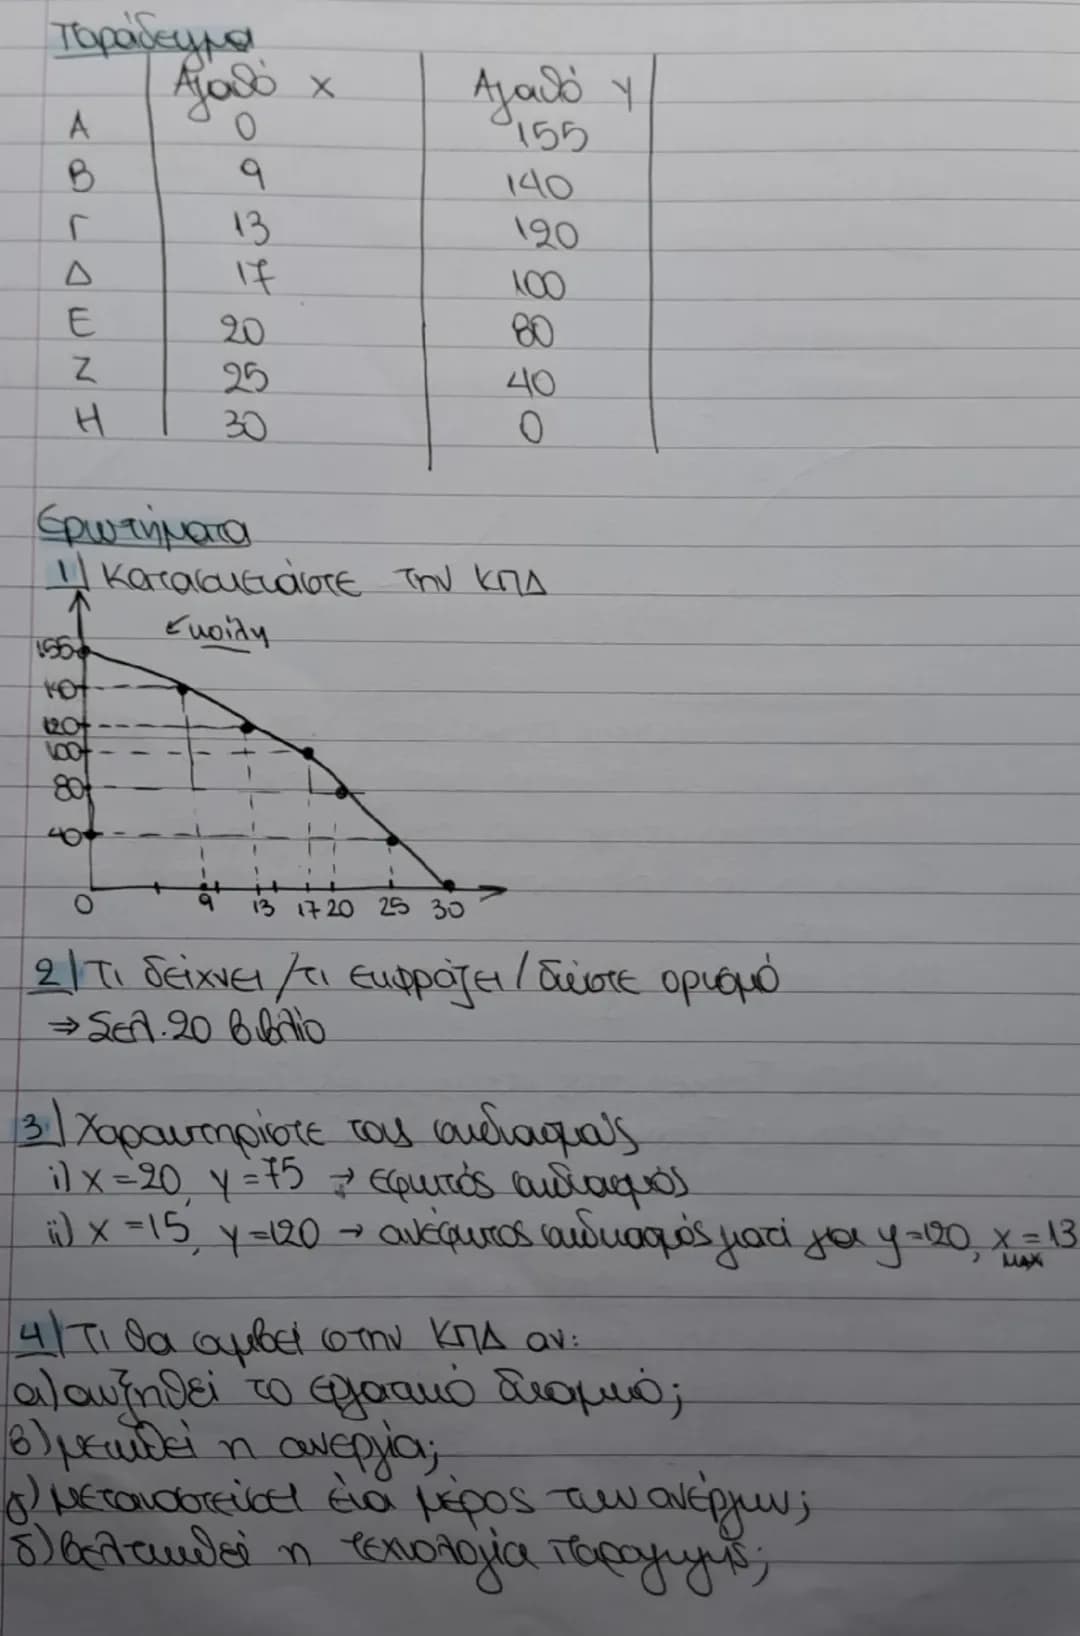 Παράδειγμα
Αγαθό x Αγαθό y
Α 0 155
Β 9 140
Γ 13 120
Δ 17 100
Ε 20 80
Ζ 25 40
Η 30 0
Ερωτήματα
1) Κατασκευάστε την ΚΠΔ
κοίλη
155
140
120
100
80
40
0 9 13 17 20 25 30
2) Τι δείχνει /τι εκφράζει / δώστε ορισμό
⇒ Σελ. 20 βιβλίο
3) Χαρακτηρίστε τους συνδιασμούς
i) x = 20, y = 75 → εφικτός συνδιασμός
ii) x = 15, y = 120 → ανέφικτος συνδιασμός γιατί για y = 120, x = 13
MAX
4) Τι θα συμβεί στην ΚΠΔ αν:
α) αυξηθεί το εργατικό δυναμικό;
β) μειωθεί η ανεργία;
γ) μεταναστεύσει ένα μέρος των ανέργων;
δ) βελτιωθεί η τεχνολογία παραγωγής;